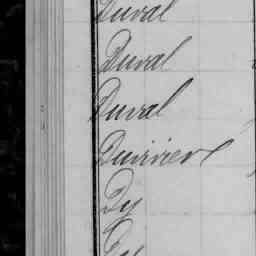 Duval
Duval
Duval
Duvivier
Dy
Dy